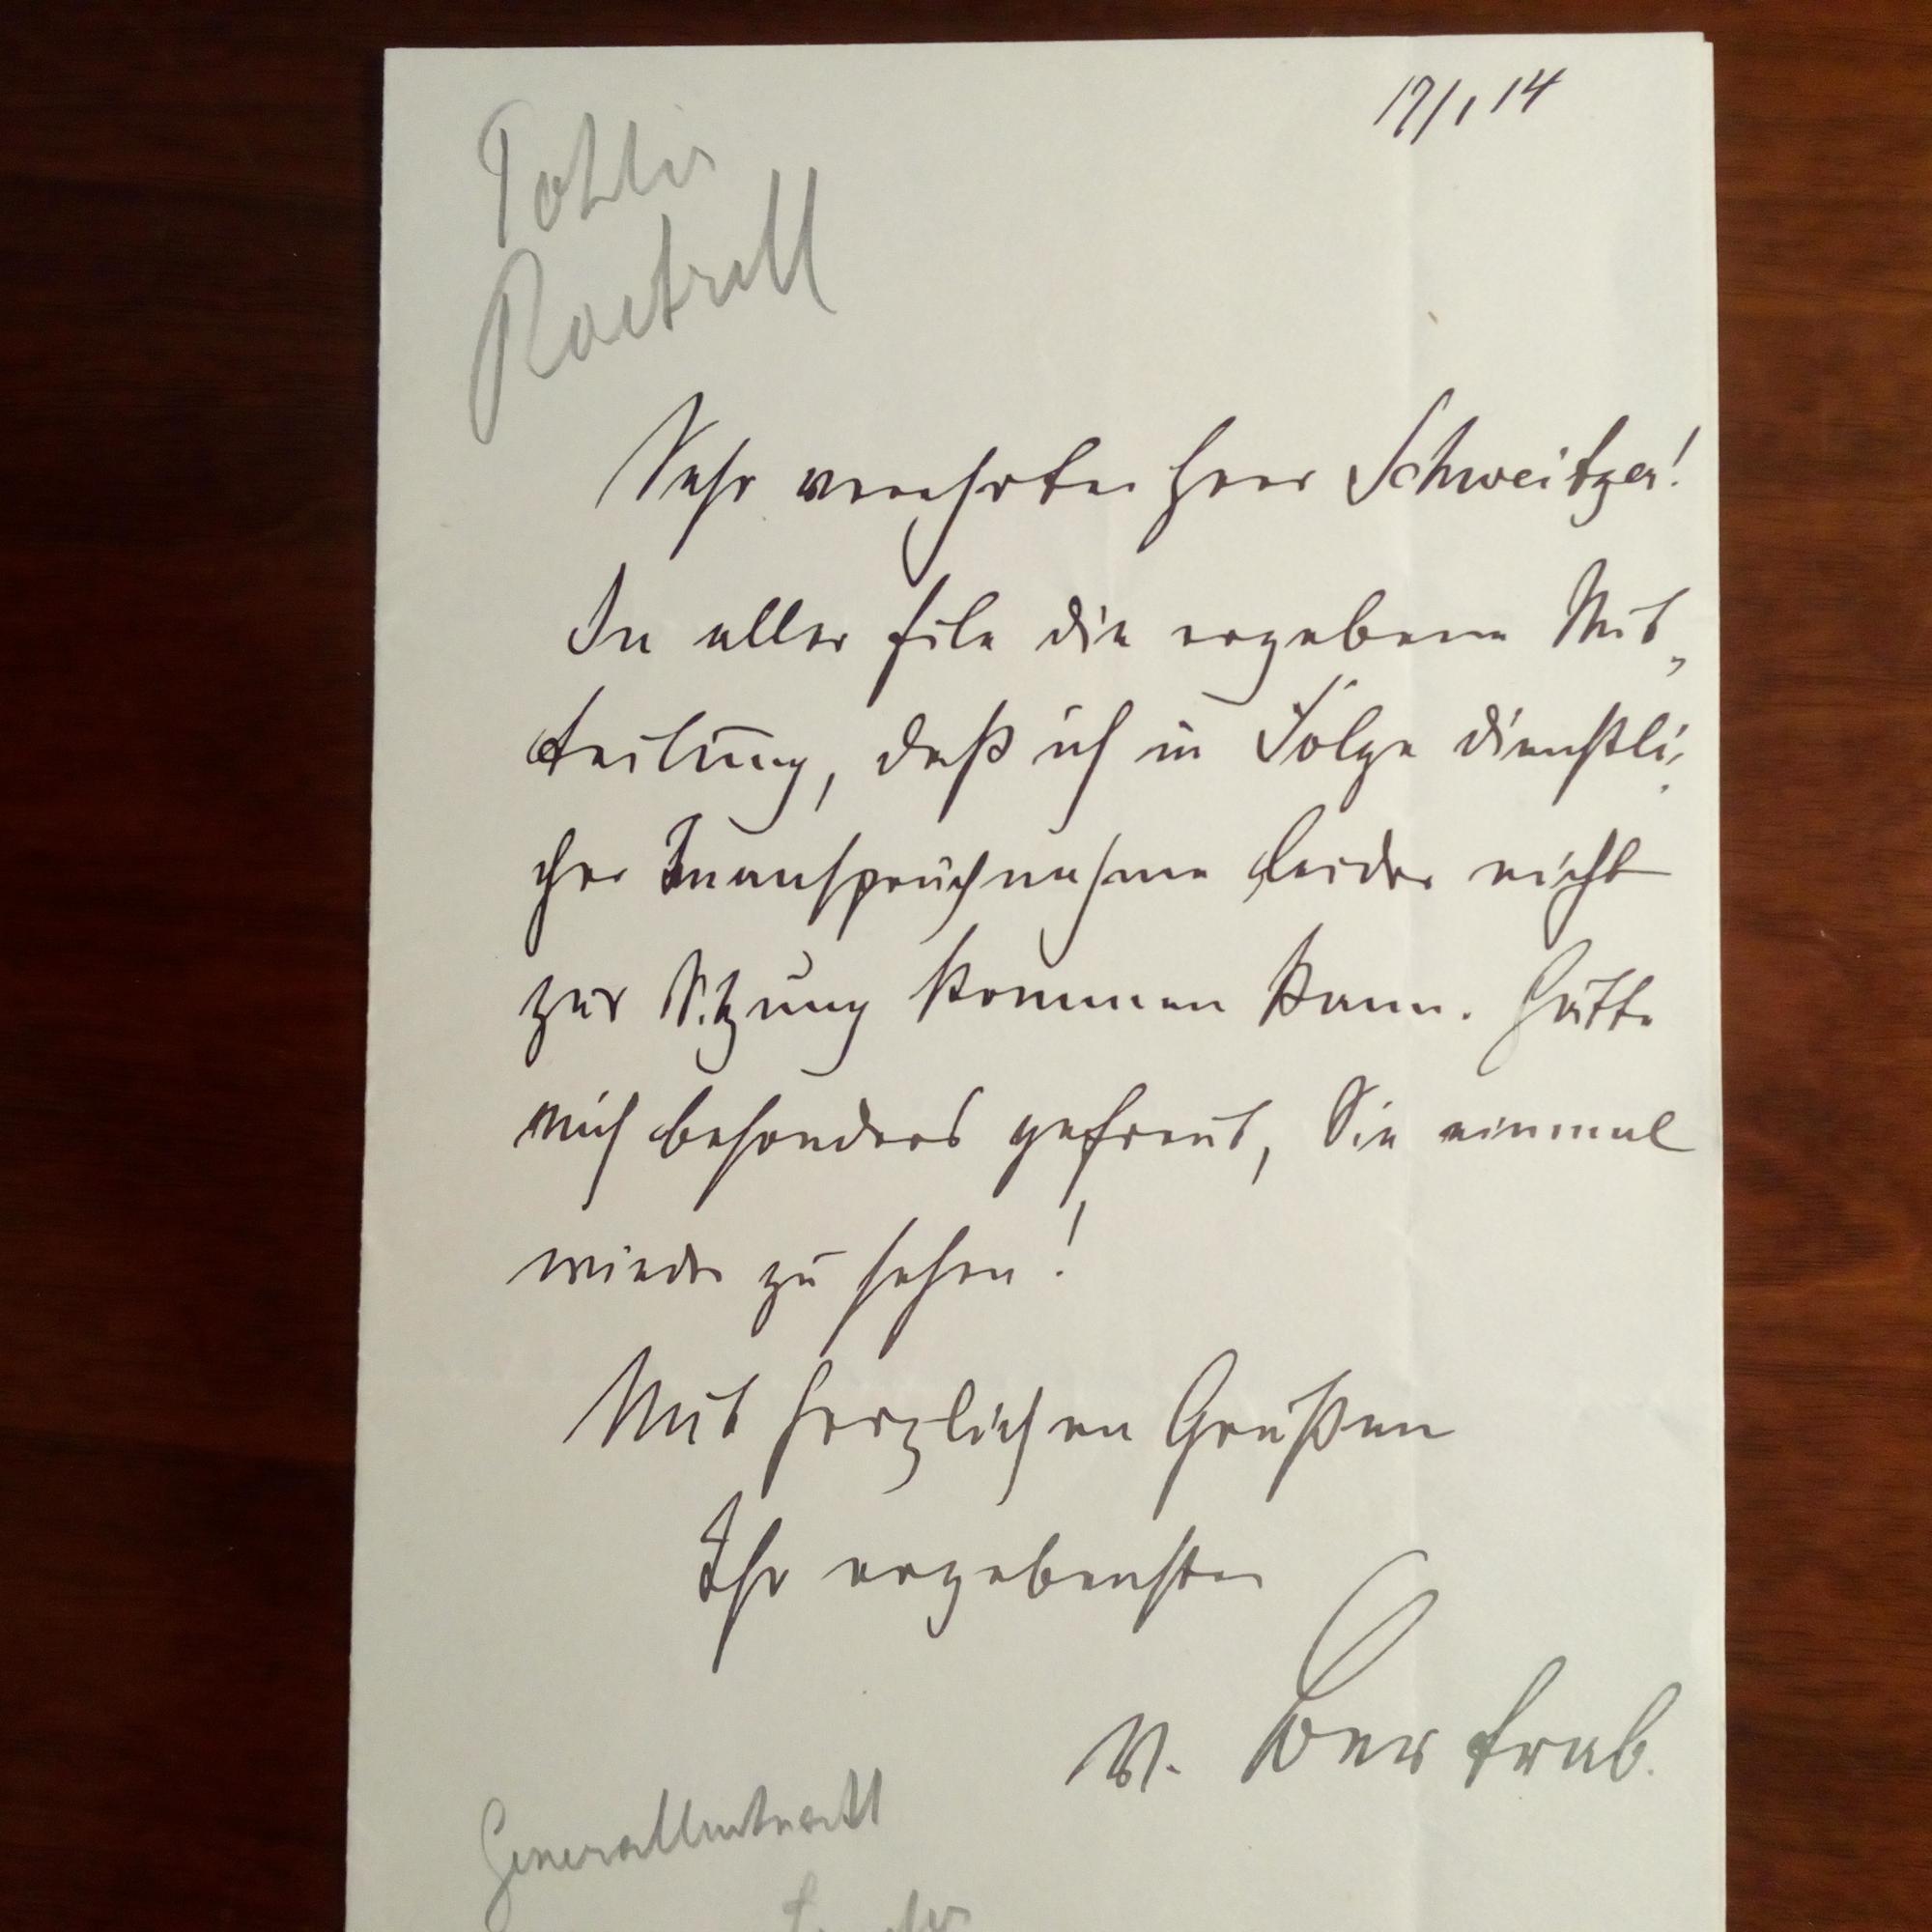 17/1 14
Sehr verehrter Herr Schweitzer!
In aller Eile die ergebene Mit„
teilung, daß ich in Folge dienstli„
cher Inanspruchnahme leider nicht
zur Sitzung kommen kann. Hätte
mich besonders gefreut, Sie einmal
wieder zu sehen!
Mit herzlichen Grüßen
Ihr ergebenster
v. Bertrab.